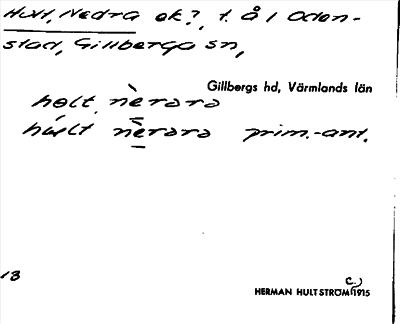 Hult, Nedra ek?, t. Å 1 Oden-
stad, Gillberga sn,
Gillbergs hd, Värmlands län
hølt nèrara
hult nèrara prim.-ant.
13
c.)
HERMAN HULTSTRÖM 1915